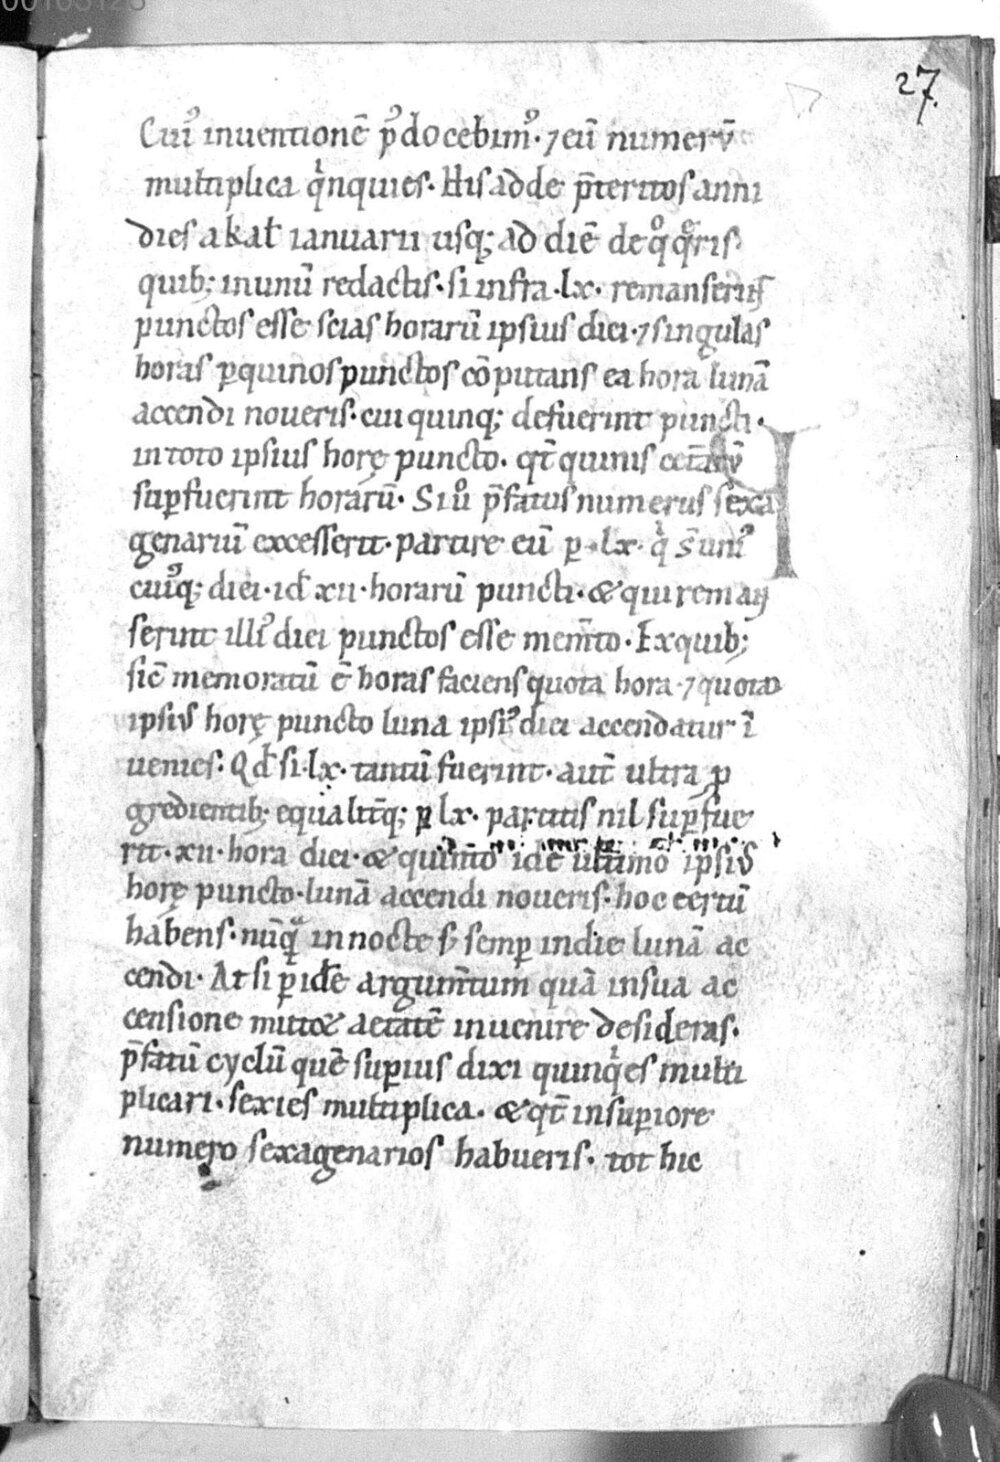 00105128
27.
Cui᷒ inuentionē p᷒docebim᷒· ⁊ eū numerū
multiplica qͥnquies· His adde p̄teritos anni
dies a kal̄ ianuarii usq; ad diē de qͦ q̄ris
quib; in unū redactis· si infra ·lx· remanserint
punctos esse scias horarū ipsius diei· ⁊ singulas
horas ꝑ quinos punctos cōputans ea hora lunā
accendi noueris· cui quinq; defuerint puncti·
in toto ipsius horę puncto· qt̄ quinis
suꝑfuerint horarū· Si uͦ p̄fatus numerus sexa
genariū excesserit· partire eū ꝑ ·lx· qͥ s̄ uni᷒
cui᷒q; diei· id ̄ xii· horarū puncti· & qui reman
serint illi᷒ diei punctos esse mem̄to· Ex quib;
sic̄ memoratū ē horas faciens quota hora· ⁊ quoto
ipsius horę puncto luna ipsi᷒ diei accendatur ī
uenies· Qd̄ si ·lx· tantū fuerint· aut̄ ultra ꝓ
gredientib; equalit̄q; ꝑ lx· partitis nil suꝑfue
rit· xii· hora diei· & quinto idē ultimo ipsius
horę puncto· lunā accendi noueris· hoc certū
habens· nūqͣ in nocte s; semꝑ in die lunā ac
cendi· At si ꝑ idē argum̄tum quā in sua ac
censione mittet aetatē inuenire desideras·
p̄fatū cyclū quē suꝑius dixi quinqͥes multi
plicari· sexies multiplica· & qt̄ in suꝑiore
numero sexagenarios habueris· tot hic